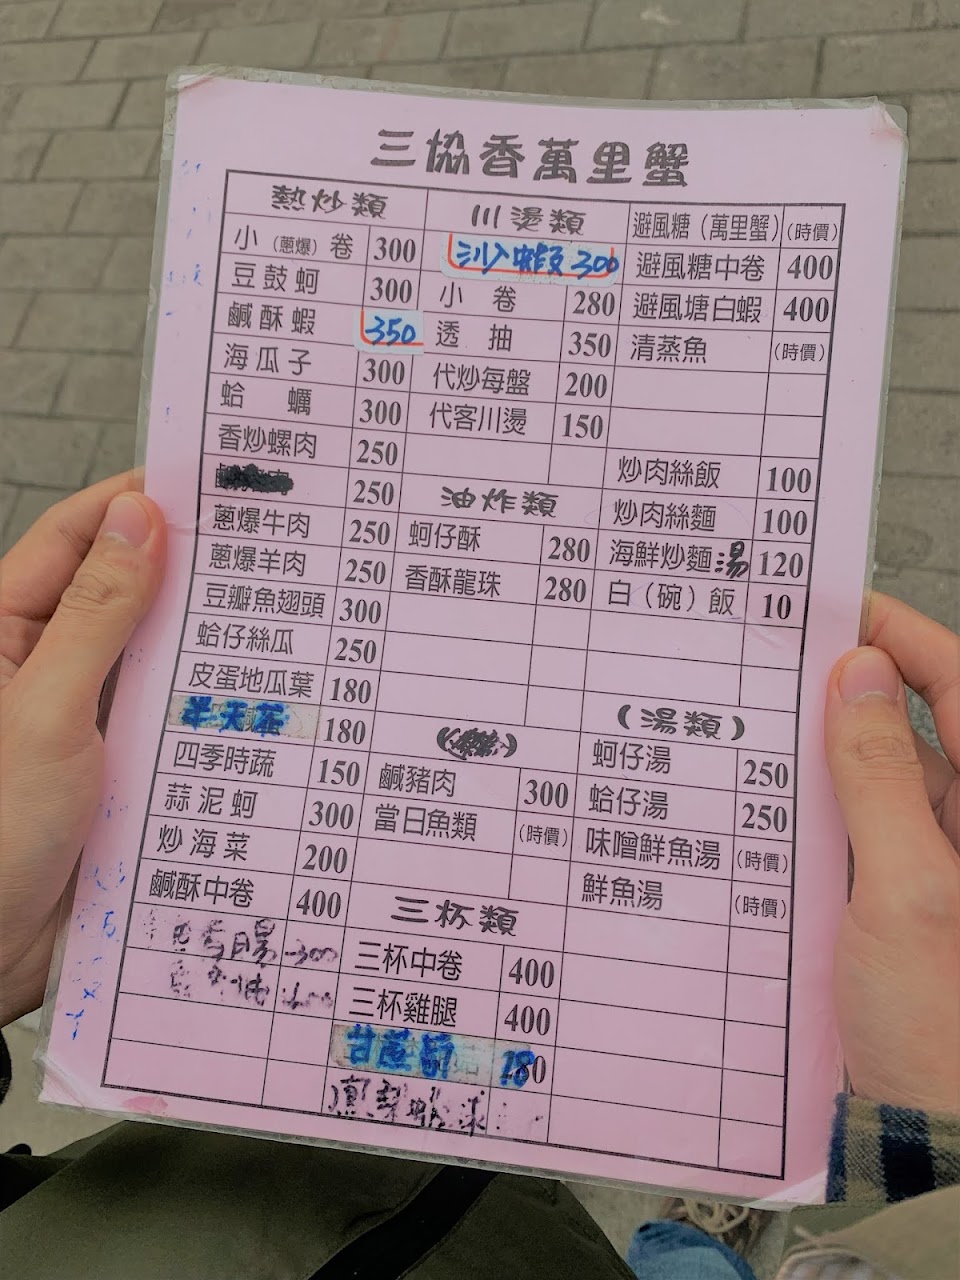 三協香萬里蟹
熱炒類
小（蔥爆）卷 300
豆鼓蚵 300
鹹酥蝦 350
海瓜子 300
蛤蠣 300
香炒螺肉 250
250
蔥爆牛肉 250
蔥爆羊肉 250
豆瓣魚翅頭 300
蛤仔絲瓜 250
皮蛋地瓜葉 180
半天菜 180
四季時蔬 150
蒜泥蚵 300
炒海菜 200
鹹酥中卷 400
300
川燙類
300
小卷 280
透抽 350
代炒每盤 200
代客川燙 150
油炸類
蚵仔酥 280
香酥龍珠 280
鹹豬肉 300
當日魚類 (時價)
三杯類
三杯中卷 400
三杯雞腿 400
甘蔗筍 180
避風糖（萬里蟹） (時價)
避風糖中卷 400
避風塘白蝦 400
清蒸魚 (時價)
炒肉絲飯 100
炒肉絲麵 100
海鮮炒麵湯 120
白（碗）飯 10
（湯類）
蚵仔湯 250
蛤仔湯 250
味噌鮮魚湯 (時價)
鮮魚湯 (時價)